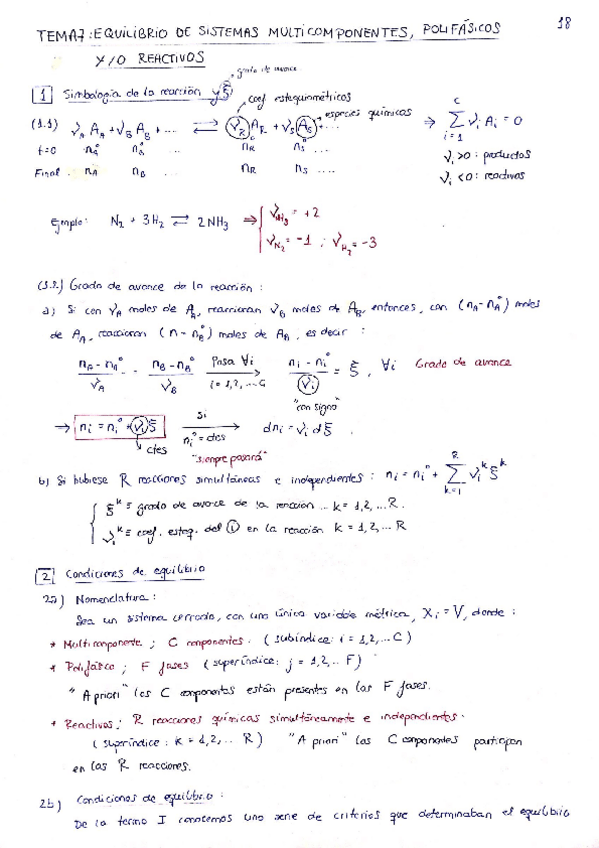 18
TEMA 7: EQUILIBRIO DE SISTEMAS MULTICOMPONENTES, POLIFÁSICOS
Y/O REACTIVOS
1 Simbología de la reacción y ξ → grado de avance
coef estequiométricos
especies químicas
(1.1) ν_A A_A + ν_B A_B + ... ⇄ ν_R A_R + ν_S A_S + ... ⇒ Σ_{i=1}^{C} ν_i A_i = 0
t=0 n_A° n_B° ... n_R° n_S° ... ν_i > 0: productos
Final n_A n_B ... n_R n_S ... ν_i < 0: reactivos
Ejmplo: N₂ + 3H₂ ⇄ 2NH₃ ⇒ { ν_NH₃ = +2
ν_N₂ = -1 ; ν_H₂ = -3
(1.2.) Grado de avance de la reacción:
a) Si con ν_A moles de A_A, reaccionan ν_B moles de A_B, entonces, con (n_A - n_A°) moles
de A_A, reaccionan (n - n_B°) moles de A_B, es decir:
(n_A - n_A°)/ν_A = (n_B - n_B°)/ν_B Pasa ∀i i = 1,2,...C → (n_i - n_i°)/ν_i = ξ, ∀i Grado de avance
"con signo"
⇒ n_i = n_i° + ν_i ξ Si n_i° = ctes → dn_i = ν_i dξ.
ctes
"siempre pasará"
b) Si hubiese R reacciones simultáneas e independientes: n_i = n_i° + Σ_{k=1}^{R} ν_i^k ξ^k
{ ξ^k ≡ grado de avance de la reacción ... k = 1,2,...R.
ν_i^k ≡ coef. esteq. del i en la reacción k = 1,2,...R
2 Condiciones de equilibrio
2a) Nomenclatura:
Sea un sistema cerrado, con una única variable métrica, X_i = V, donde:
* Multicomponente; C componentes. (subíndice: i = 1,2,...C)
* Polifásico; F fases (superíndice: j = 1,2,...F)
"A priori" los C componentes están presentes en las F fases.
* Reactivos; R reacciones químicas simultáneamente e independientes.
(superíndice: k = 1,2,...R) "A priori" los C componentes participan
en las R reacciones.
2b) Condiciones de equilibrio:
De la termo I conocemos una serie de criterios que determinaban el equilibrio